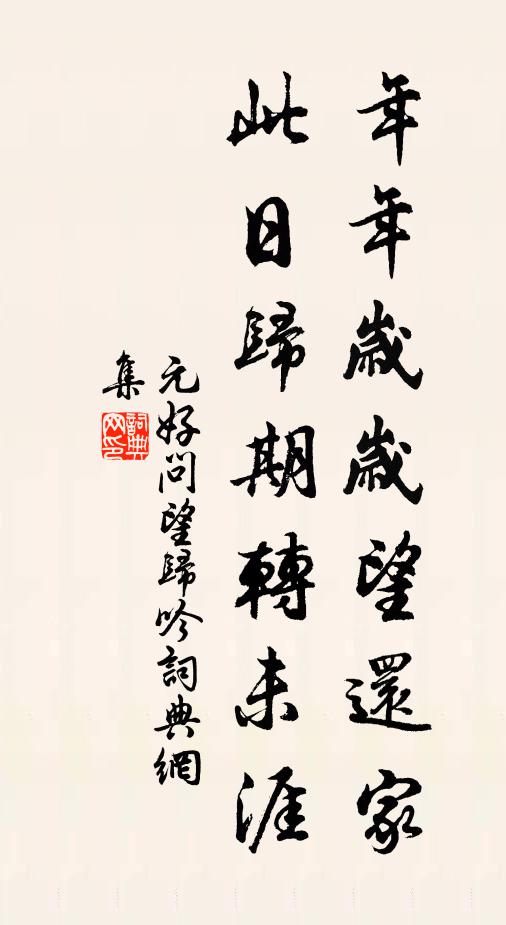 年年歲歲望還家
此日歸期轉未涯
元好问望歸吟詞典網
集
詞典
网印